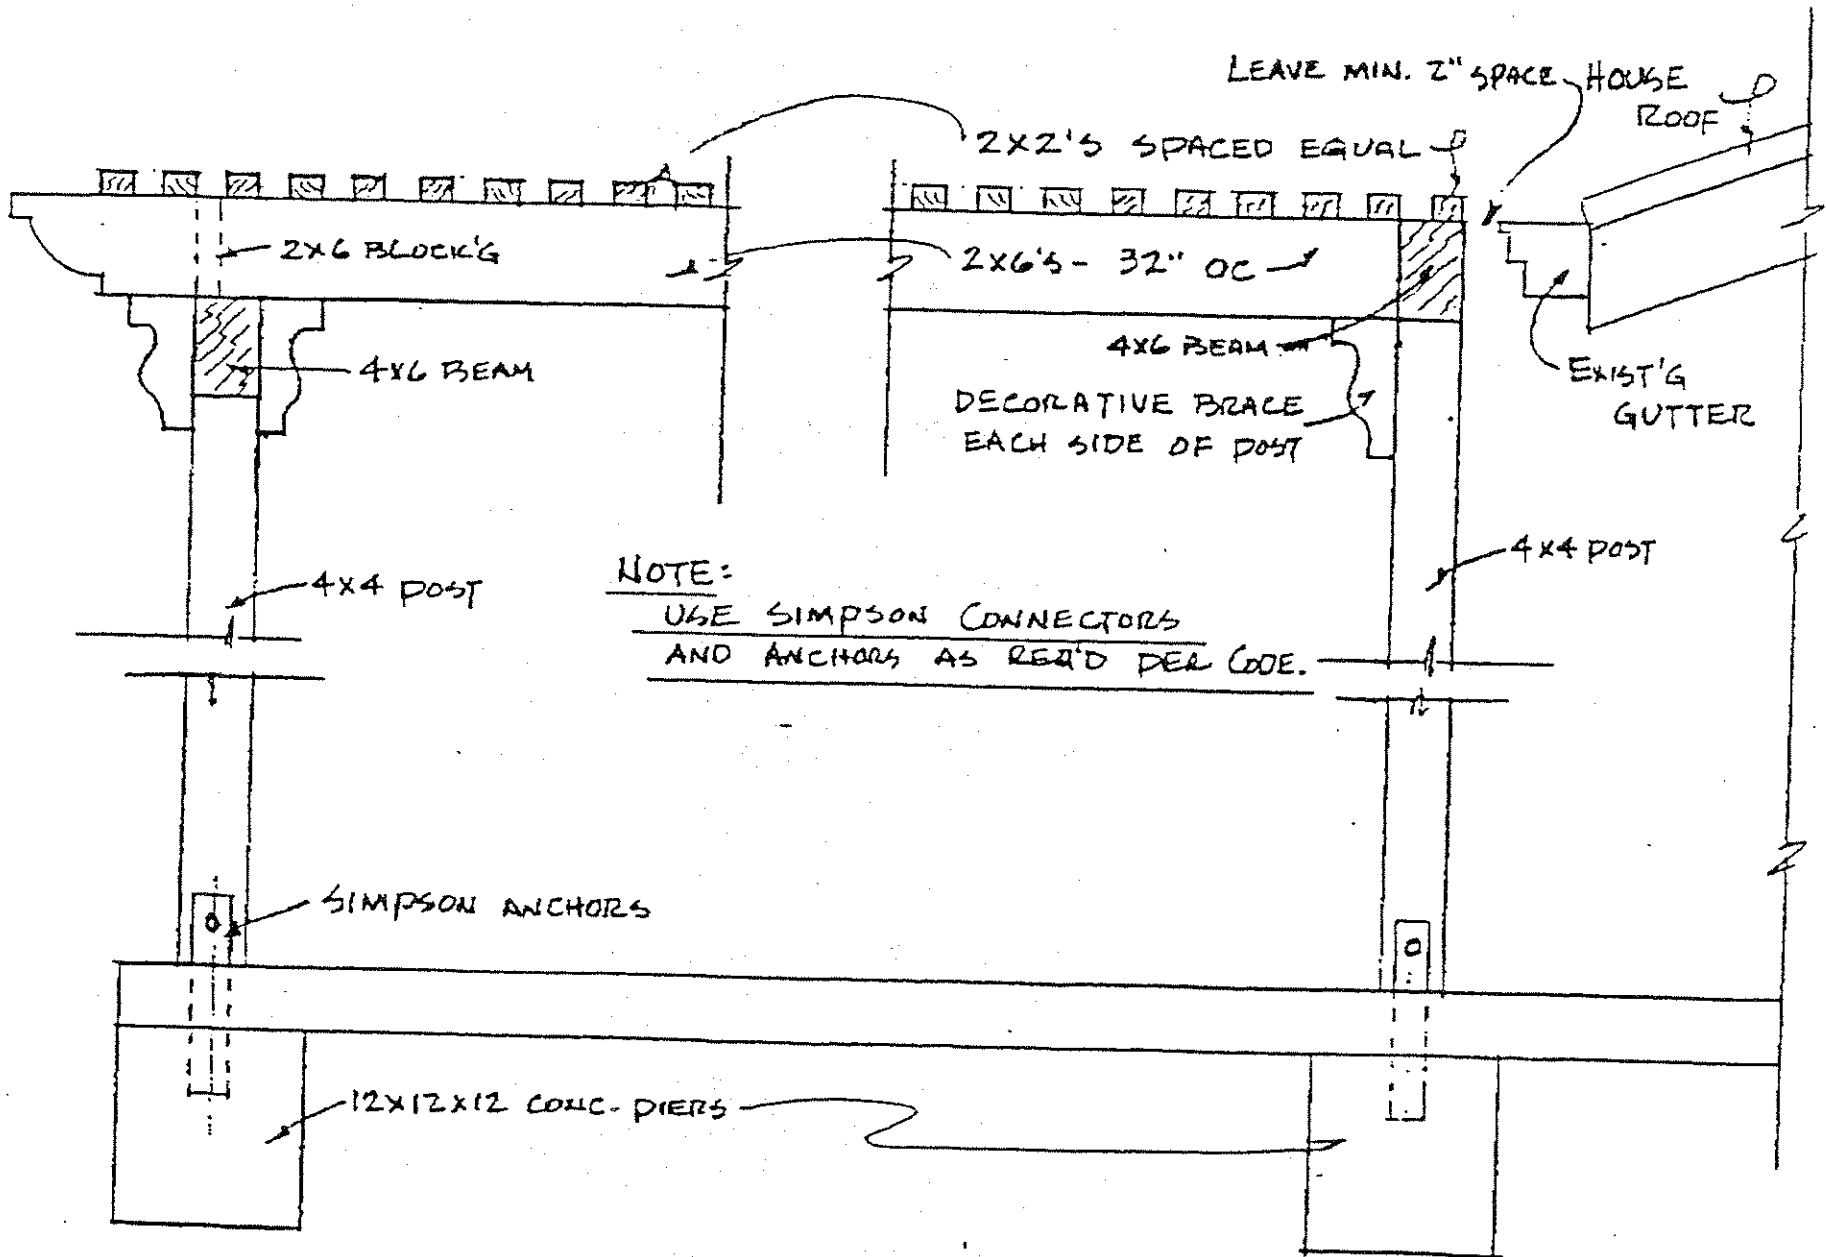 LEAVE MIN. 2" SPACE
HOUSE
ROOF
2X2'S SPACED EQUAL
2X6 BLOCK'G
2X6'S - 32" OC
4X6 BEAM
4X6 BEAM
EXIST'G
GUTTER
DECORATIVE BRACE
EACH SIDE OF POST
4X4 POST
4X4 POST
NOTE:
USE SIMPSON CONNECTORS
AND ANCHORS AS REQ'D PER CODE.
SIMPSON ANCHORS
12X12X12 CONC. PIERS